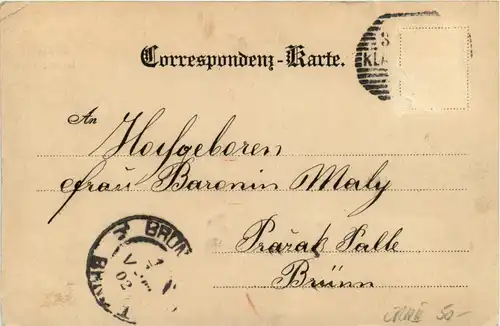 Correspondenz-Karte.
KLA
An
Hochgeboren
Frau Baronin Maly
Pražak Palle
Brünn
BRÜN
02
50-